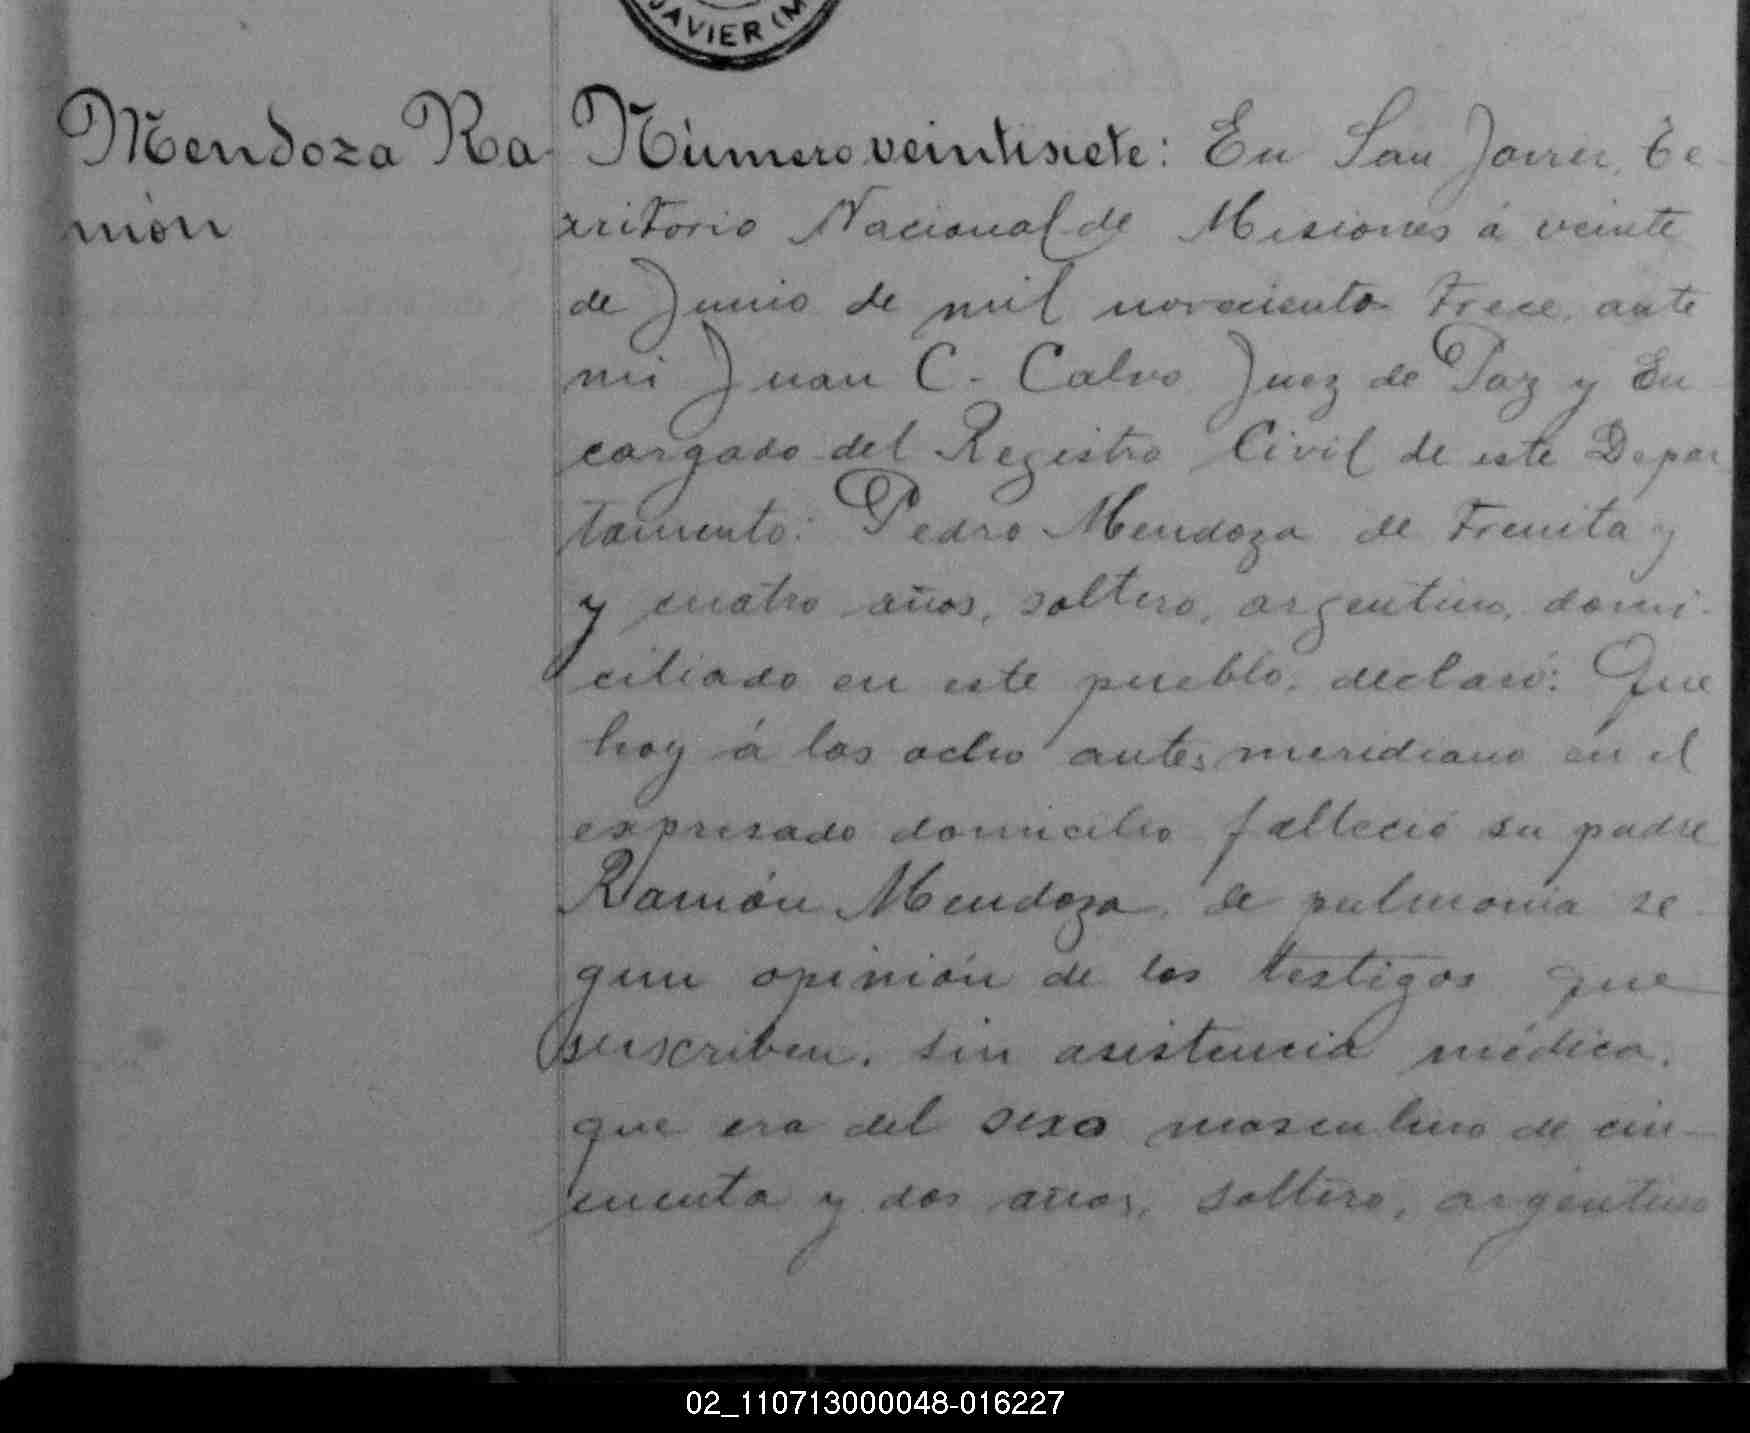 JAVIER (M
Mendoza Ra-
món
Número veintisiete: En San Javier, Te-
rritorio Nacional de Misiones á veinte
de Junio de mil novecientos trece, ante
mi Juan C. Calvo Juez de Paz y En-
cargado del Registro Civil de este Depar
tamento: Pedro Mendoza de treinta y
y cuatro años, soltero, argentino, domi-
ciliado en este pueblo, declaró: Que
hoy á las ocho antes meridiano en el
expresado domicilio falleció su padre
Ramón Mendoza, de pulmonía se-
gun opinión de los testigos que
suscriben, sin asistencia médica,
que era del sexo masculino de cin-
cuenta y dos años, soltero, argentino
02_110713000048-016227